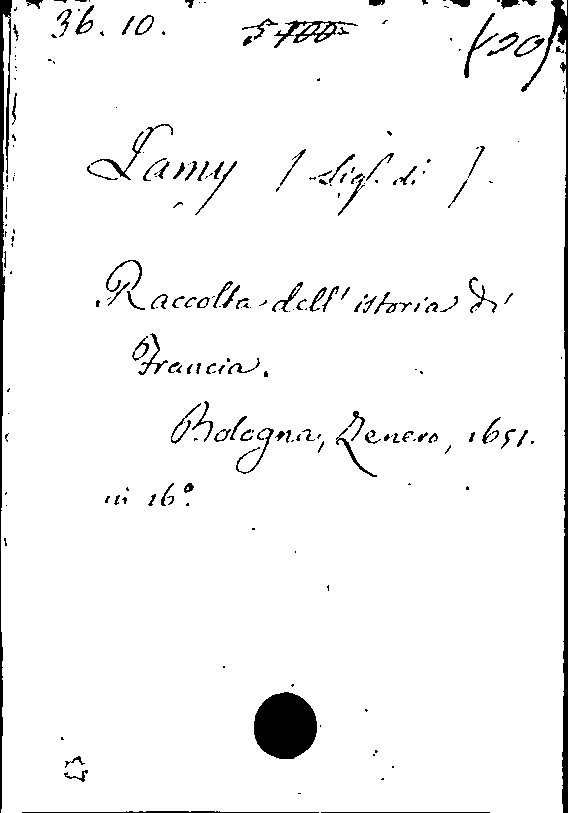 36. 10. 5700 (90)
Lamy / Sigr. di /.
Raccolta dell' istoria di
Francia.
Bologna, Zenero, 1651.
in 16º.